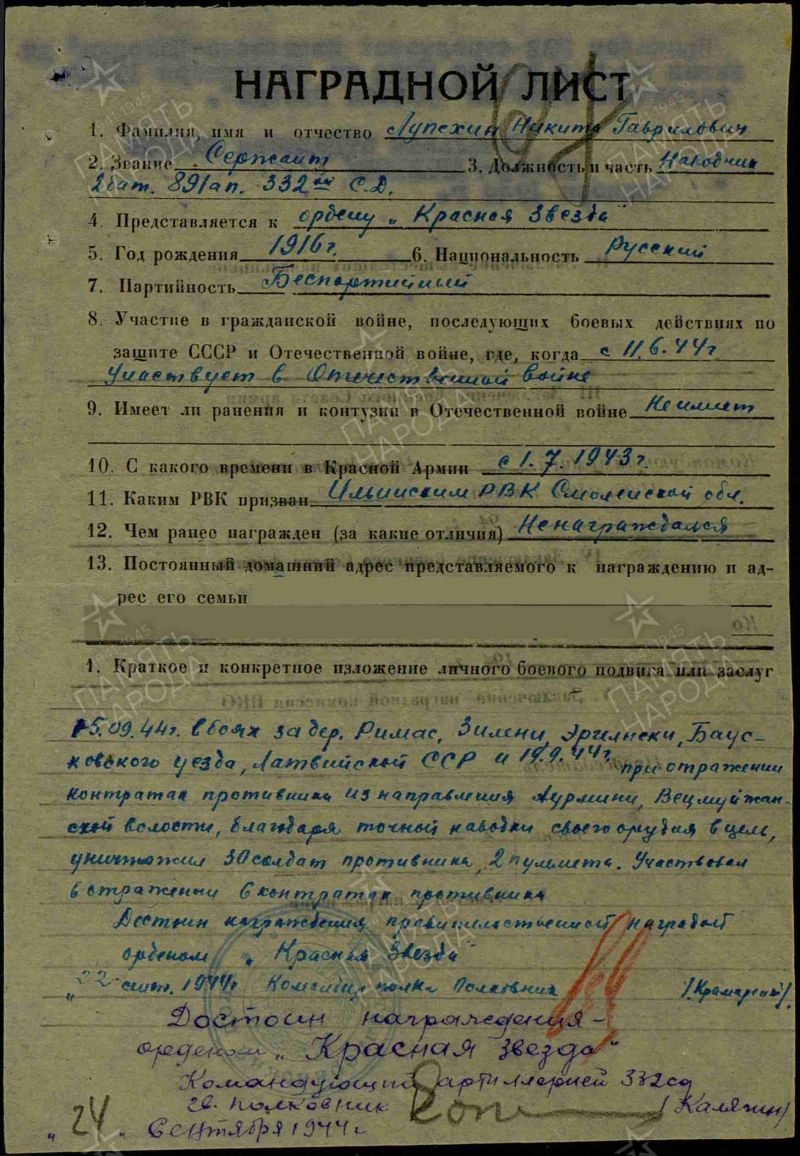 НАГРАДНОЙ ЛИСТ
1. Фамилия, имя и отчество Лупехин Никита Гаврилович
2. Звание Сержант 3. Должность и часть Наводчик
2 бат. 891 ап. 332ой С.Д.
4. Представляется к ордену „Красная Звезда"
5. Год рождения 1916 г. 6. Национальность Русский
7. Партийность Беспартийный
8. Участие в гражданской войне, последующих боевых действиях по
защите СССР и Отечественной войне, где, когда с 11.6.44 г
участвует в Отечественной войне
9. Имеет ли ранения и контузии в Отечественной войне Не имеет
10. С какого времени в Красной Армии с 1.7.1943 г.
11. Каким РВК призван Ильинским РВК Смоленской обл.
12. Чем ранее награжден (за какие отличия) Не награждался
13. Постоянный домашний адрес представляемого к награждению и ад-
рес его семьи
1. Краткое и конкретное изложение личного боевого подвига или заслуг
15.09.44 г. в боях за дер. Римас, Зилени, Баус-
ковского уезда, Латвийской ССР и 19.9.44 г. при отражении
контратак противника из направления Аурмини, Вецмуйжан-
ской волости, благодаря точной наводки своего орудия в цель,
уничтожил 30 солдат противника, 2 пулемета. Участвовал
в отражении 6 контратак противника
Достоин награждения правительственной наградой
орденом „Красная Звезда"
„22" сент. 1944 г Командир полка Полковник
Достоин награждения -
орденом „Красная звезда"
Командующий артиллерией 332 сд
гв. полковник /Калягин/
„24" Сентября 1944 г
ПАМЯТЬ НАРОДА